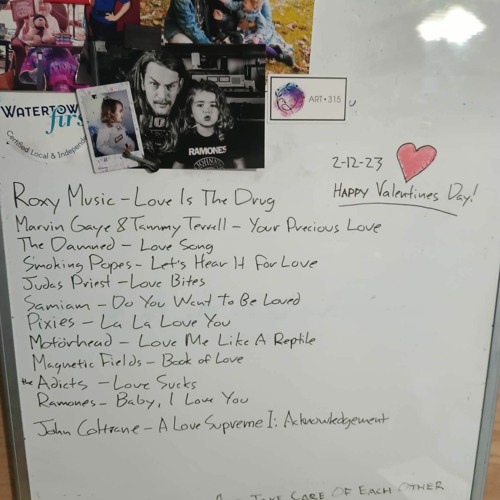 WATERTOWN
first
Certified Local & Independ
RAMONES
ART•315
2-12-23
HAPPY Valentines Day!
Roxy Music – Love Is The Drug
Marvin Gaye & Tammy Terrell – Your Precious Love
The Damned – Love Song
Smoking Popes – Let's Hear It For Love
Judas Priest – Love Bites
Samiam – Do You Want To Be Loved
Pixies – La La Love You
Motörhead – Love Me Like A Reptile
Magnetic Fields – Book of Love
the Adicts – Love Sucks
Ramones – Baby, I Love You
John Coltrane – A Love Supreme I: Acknowledgement
TAKE CARE OF EACH OTHER